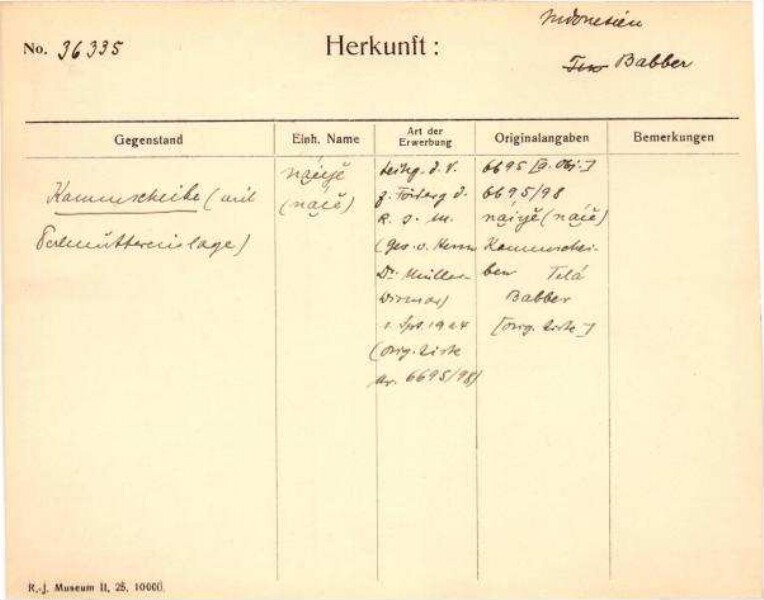 Indonesien
No. 36335
Herkunft:
Babber
Gegenstand
Einh. Name
Art der Erwerbung
Originalangaben
Bemerkungen
Kammscheibe (mit
Perlmuttereinlage)
náiyĕ
(náiĕ)
Leihg. d. V.
z. Förderg d.
R. J. M.
(ges. v. Herrn
Dr. Müller-
Wismar)
1. Spt. 1924
(orig. Liste
Nr. 6695/98)
6695 [a. Obj.]
6695/98
náiyĕ (náiĕ)
Kammschei-
ben Telá
Babber
[orig. Liste]
R.-j. Museum II, 25, 10000.